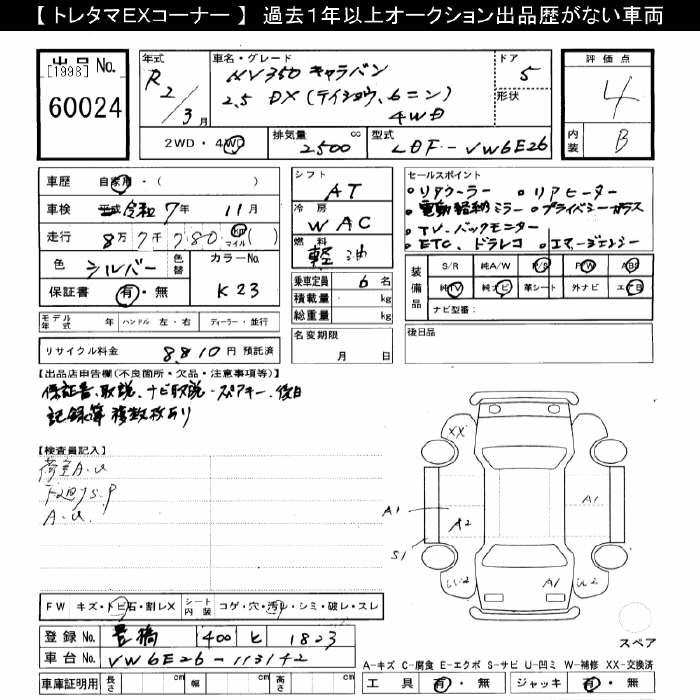 【 トレタマEXコーナー 】 過去1年以上オークション出品歴がない車両
出品 No.
[1998]
60024
年式
R 2/3 月
車名・グレード
NV350 キャラバン
2.5 DX(テイショウ、6ニン)
4WD
ドア
5
形状
評価点
4
内装
B
2WD ・ 4WD
排気量 2500 cc
型式 LDF - VW6E26
車歴 自家用 ・ ( )
車検 平成 令和 7年 11月
走行 8万 7千 780 km マイル ( )
色 シルバー 色替
カラーNo. K23
保証書 有 ・ 無
モデル年式 年 ハンドル 左・右 ディーラー・並行
リサイクル料金 8,810 円 預託済
シフト AT
冷房 WAC
燃料 軽油
乗車定員 6 名
積載量 kg
総重量 kg
名変期限
月 日
セールスポイント
・リアクーラー ・リアヒーター
・電動格納ミラー ・プライバシーガラス
・TV・バックモニター
・ETC、ドラレコ ・エマージェンシー
装備品
S/R 純A/W P/S P/W ABS
純TV 純ナビ 革シート 外ナビ エアB
ナビ型番:
後日品
【出品店申告欄(不良箇所・欠品・注意事項等)】
保証書、取説、ナビ取説・スペアキー、後日
記録簿 複数枚あり
【検査員記入】
荷室A.U
A.U
XX
A1
A2
S1
A1
A1
FW キズ・トビ石・割レX
シート内装 コゲ・穴・汚レ・シミ・破レ・スレ
登録 No. 豊橋 400 ヒ 1823
車台 No. VW6E26-113142
車庫証明用 長さ cm 幅 cm 高さ cm
スペア
A-キズ C-腐食 E-エクボ S-サビ U-凹ミ W-補修 XX-交換済
工具 有 ・ 無 ジャッキ 有 ・ 無